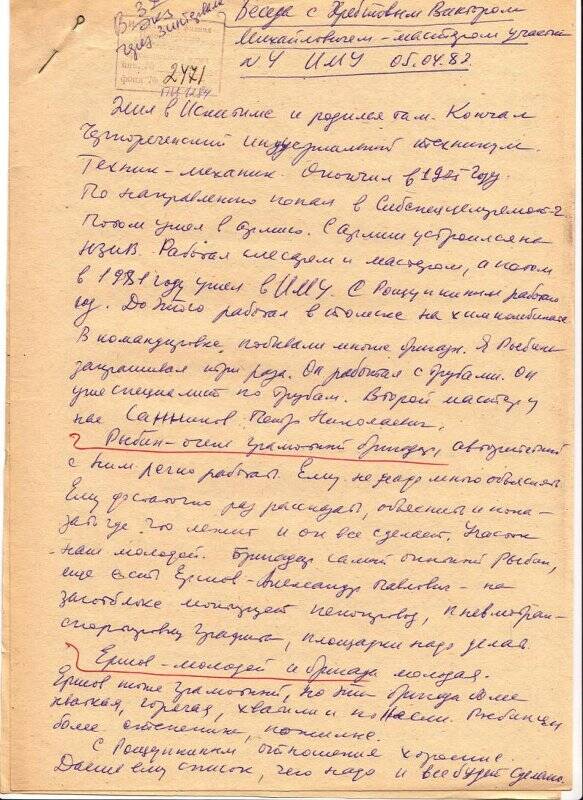 Беседа с Хребтовым Виктором
Михайловичем - мастером участка
№4 ИМУ 05.04.82
2471
Жил в Искитиме и родился там. Кончал
Чернореченский индустриальный техникум.
Техник-механик. Окончил в году.
По направлению попал в
Потом ушел в армию. С армии устроился на
НЗИВ. Работал слесарем и мастером, а потом
в 1981 году ушел в ИМУ. С Рощупкиным работаю
год. До этого работал в Томске на химкомбинате
В командировке, побывали многие бригады. Я Рыбина
запрашивал три раза. Он работал с трубами. Он
уже специалист по трубам. Второй мастер у
нас Санников Петр Николаевич.
Рыбин - очень грамотный бригадир, авторитетный
с ним легко работать. Ему не надо много объяснять
Ему достаточно раз рассказать, объяснить и пока-
зать где что лежит и он все сделает. Участок
наш молодой. Бригадир самый опытный Рыбин,
еще есть Ершов - Александр Павлович - на
монтирует пенопровод, пневмотран-
спортировку графита, площадки надо делать.
Ершов - молодой и бригада молодая.
Ершов тоже грамотный, но бригада более
хваткая, горячая,
более степенные, пожилые.
С Рощупкиным отношения хорошие.
Даешь ему список, чего надо и все будет сделано.